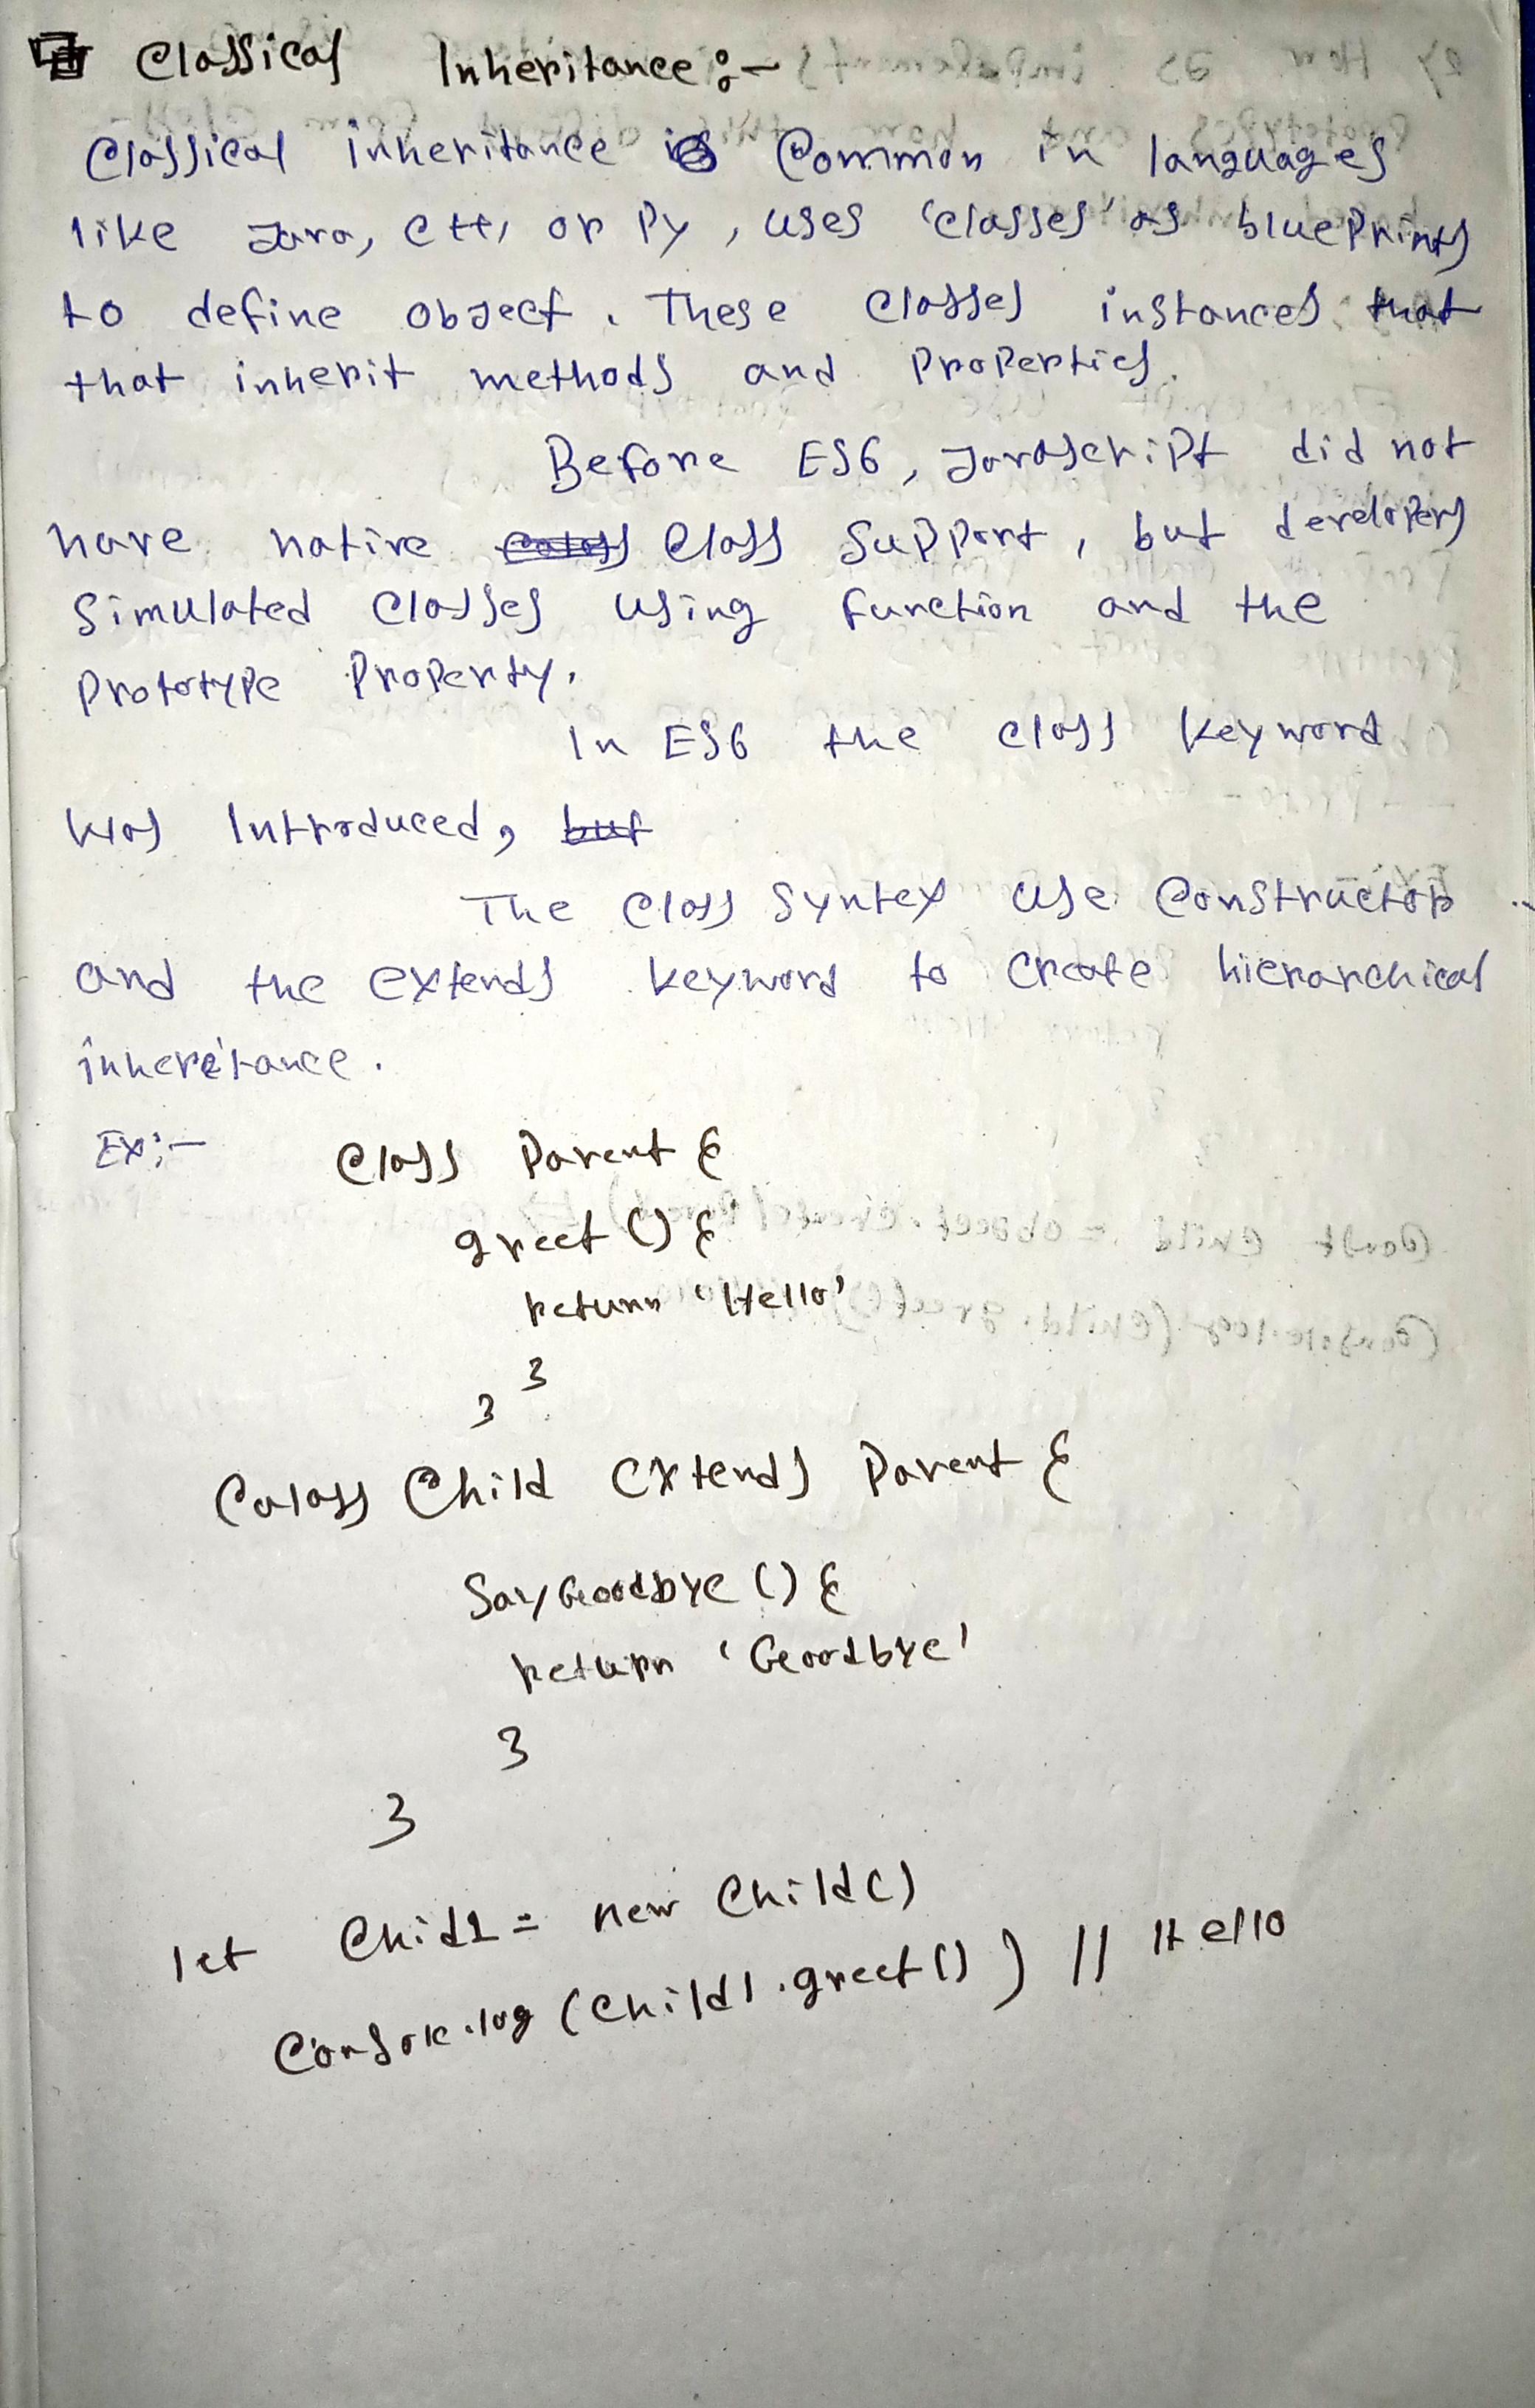 Classical Inheritance :-
Classical inheritance is Common in languages
like Java, C++, or Py, uses 'classes' as bluePrints
to define object. These Classes instances that
that inherit methods and Properties.
Before ES6, JavaScript did not
have native Class Support, but developers
Simulated Classes using function and the
Prototype Property.
In ES6 the class keyword
Was Introduced, but
The Class Syntex use Constructor
and the extends keyword to Create hierarchical
inheritance.
Ex:- Class Parent {
greet () {
return 'Hello'
}
}
Calass Child extends Parent {
SayGoodbye () {
return 'Goodbye'
}
}
let Chid1 = new Child()
Console.log (Child1.greet()) // Hello